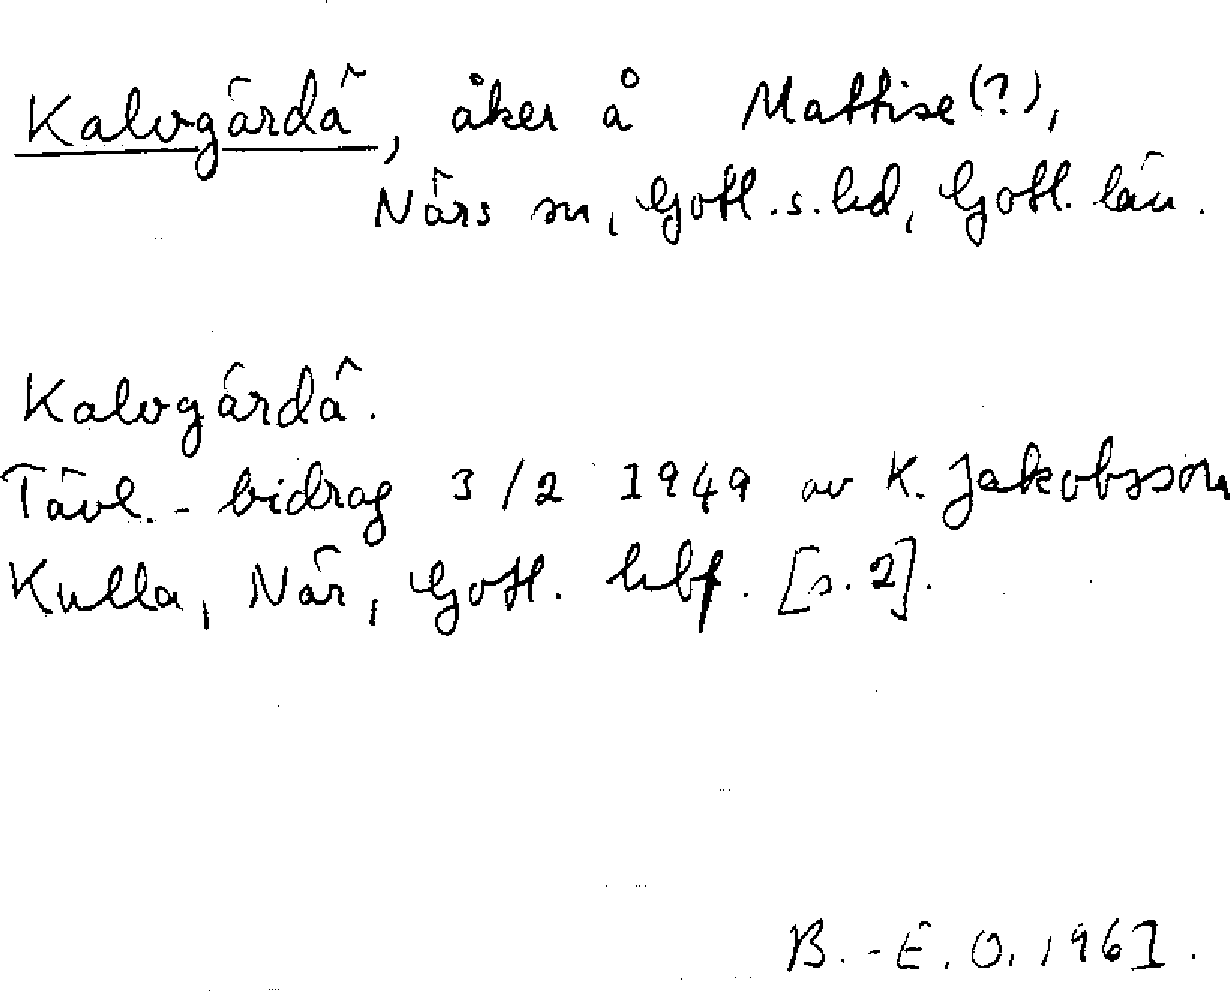 Kalvgärdä, åker å Mattise(?),
Närs sn, Gotl. s. hd, Gotl. län.
Kalvgärdâ.
Tävl.-bidrag 3/2 1949 av K. Jakobsson
Kulla, När, Gotl. hbf. [s. 2].
B.-E. O. 1961.